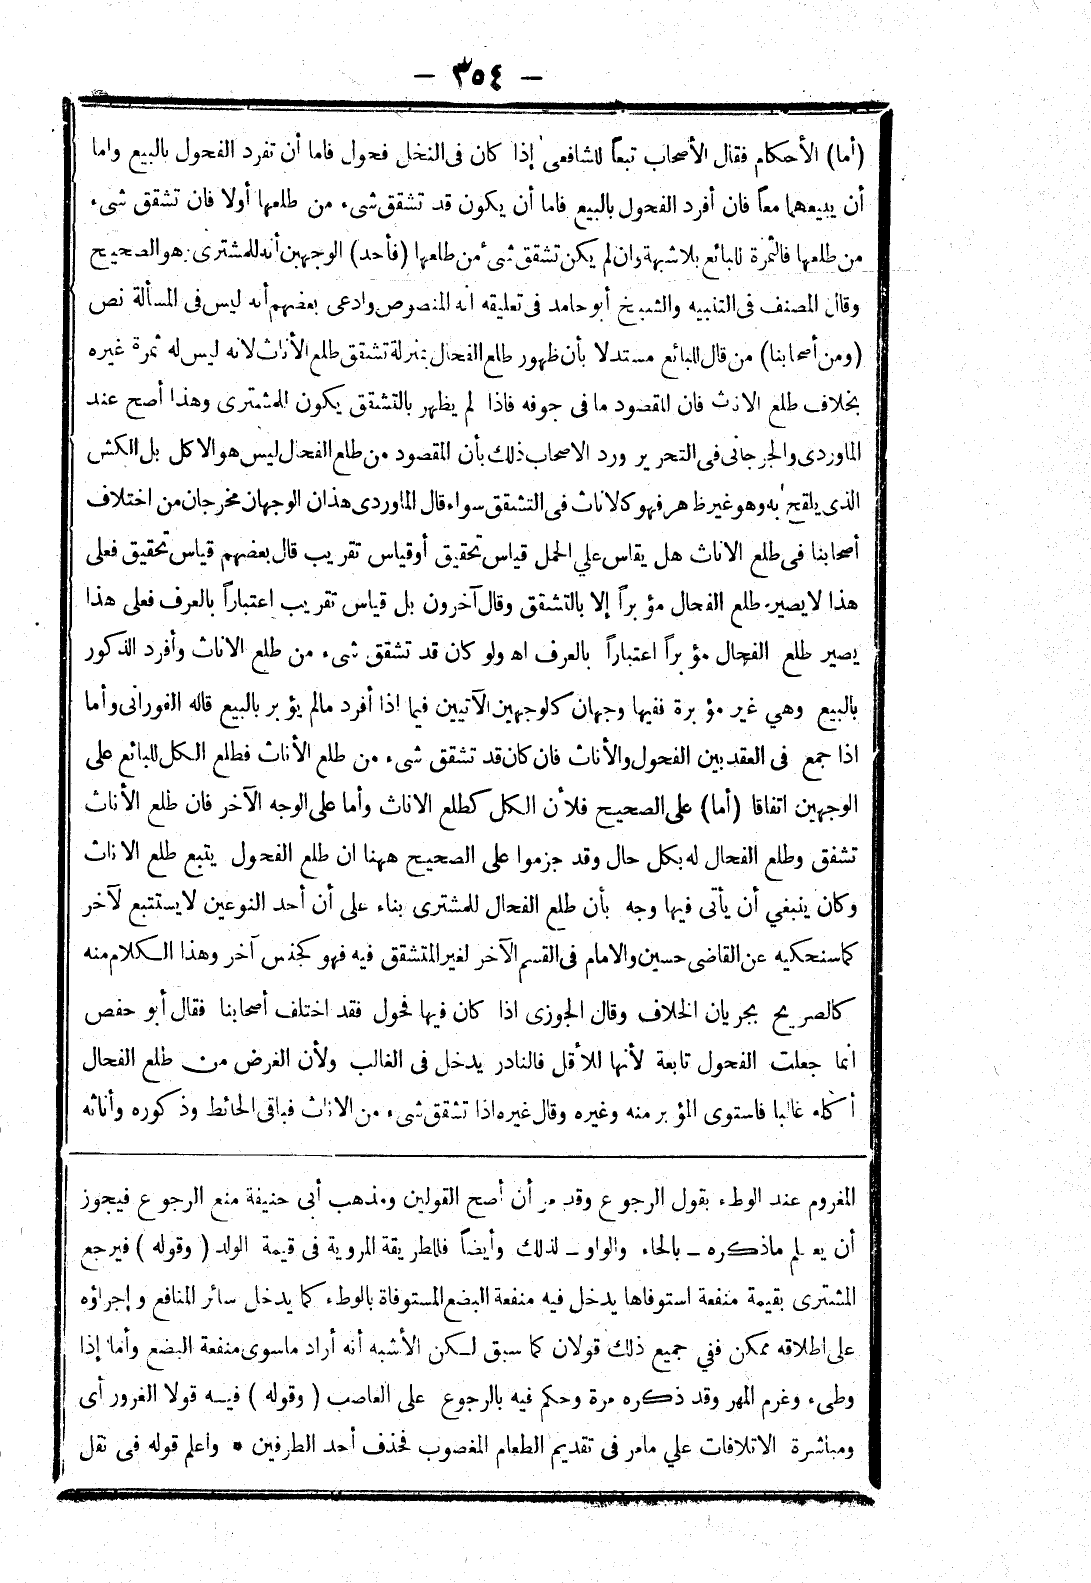 — ٣٥٤ —
(أما) الأحكام فقال الأصحاب تبعاً للشافعى إذا كان فى النخل فحول فاما أن تفرد الفحول بالبيع واما
أن يبيعهما معاً فان أفرد الفحول بالبيع فاما أن يكون قد تشقق شىء من طلعها أولا فان تشقق شىء
من طلعها فالثمرة للبائع بلا شبهة وان لم يكن تشقق شىء من طلعها (فأحد) الوجهين أنه للمشترى وهو الصحيح
وقال المصنف فى التنبيه والشيخ أبو حامد فى تعليقه انه المنصوص وادعى بعضهم أنه ليس فى المسألة نص
(ومن أصحابنا) من قال للبائع مستدلا بأن ظهور طلع الفحال بمنزلة تشقق طلع الأناث لانه ليس له ثمرة غيره
بخلاف طلع الاناث فان المقصود ما فى جوفه فاذا لم يظهر بالتشقق يكون للمشترى وهذا أصح عند
الماوردى والجرجانى فى التحرير ورد الاصحاب ذلك بأن المقصود من طلع الفحال ليس هو الاكل بل الكش
الذى يلقح به وهو غير ظاهر فهو كالاناث فى التشقق سواء قال الماوردى هذان الوجهان مخرجان من اختلاف
أصحابنا فى طلع الاناث هل يقاس علي الحمل قياس تحقيق أو قياس تقريب قال بعضهم قياس تحقيق فعلى
هذا لا يصير طلع الفحال مؤبراً إلا بالتشقق وقال آخرون بل قياس تقريب اعتباراً بالعرف فعلى هذا
يصير طلع الفحال مؤبراً اعتباراً بالعرف اه ولو كان قد تشقق شىء من طلع الاناث وأفرد الذكور
بالبيع وهي غير مؤبرة ففيها وجهان كلوجهين الآتيين فيما اذا أفرد مالم يؤبر بالبيع قاله الفورانى وأما
اذا جمع فى العقد بين الفحول والأناث فان كان قد تشقق شىء من طلع الأناث فطلع الكل للبائع على
الوجهين اتفاقا (أما) على الصحيح فلأن الكل كطلع الاناث وأما على الوجه الآخر فان طلع الأناث
تشقق وطلع الفحال له بكل حال وقد جزموا على الصحيح ههنا ان طلع الفحول يتبع طلع الاناث
وكان ينبغي أن يأتى فيها وجه بأن طلع الفحال للمشترى بناء على أن أحد النوعين لا يستتبع لآخر
كما سنحكيه عن القاضى حسين والامام فى القسم الآخر لغير المتشقق فيه فهو كجنس آخر وهذا الكلام منه
كالصريح بجريان الخلاف وقال الجوزى اذا كان فيها فحول فقد اختلف أصحابنا فقال أبو حفص
انما جعلت الفحول تابعة لأنها للأقل فالنادر يدخل فى الغالب ولأن الغرض من طلع الفحال
أكله غالبا فاستوى المؤبر منه وغيره وقال غيره اذا تشقق شىء من الاناث فباقى الحائط وذكوره وأناثه
المغروم عند الوطء بقول الرجوع وقد مر أن أصح القولين ومذهب أبى حنيفة منع الرجوع فيجوز
أن يعلم ماذكره ـ بالحاء والواو ـ لذلك وأيضاً فللطريقة المروية فى قيمة الولد (وقوله) فيرجع
المشترى بقيمة منفعة استوفاها يدخل فيه منفعة البضع المستوفاة بالوطء كما يدخل سائر المنافع وإجراؤه
على اطلاقه ممكن ففي جميع ذلك قولان كما سبق لكن الأشبه أنه أراد ماسوى منفعة البضع وأما إذا
وطىء وغرم المهر وقد ذكره مرة وحكم فيه بالرجوع على الغاصب (وقوله) فيه قولا الغرور أى
ومباشرة الاتلافات علي مامر فى تقديم الطعام المغصوب فحذف أحد الطرفين * واعلم قوله فى نقل